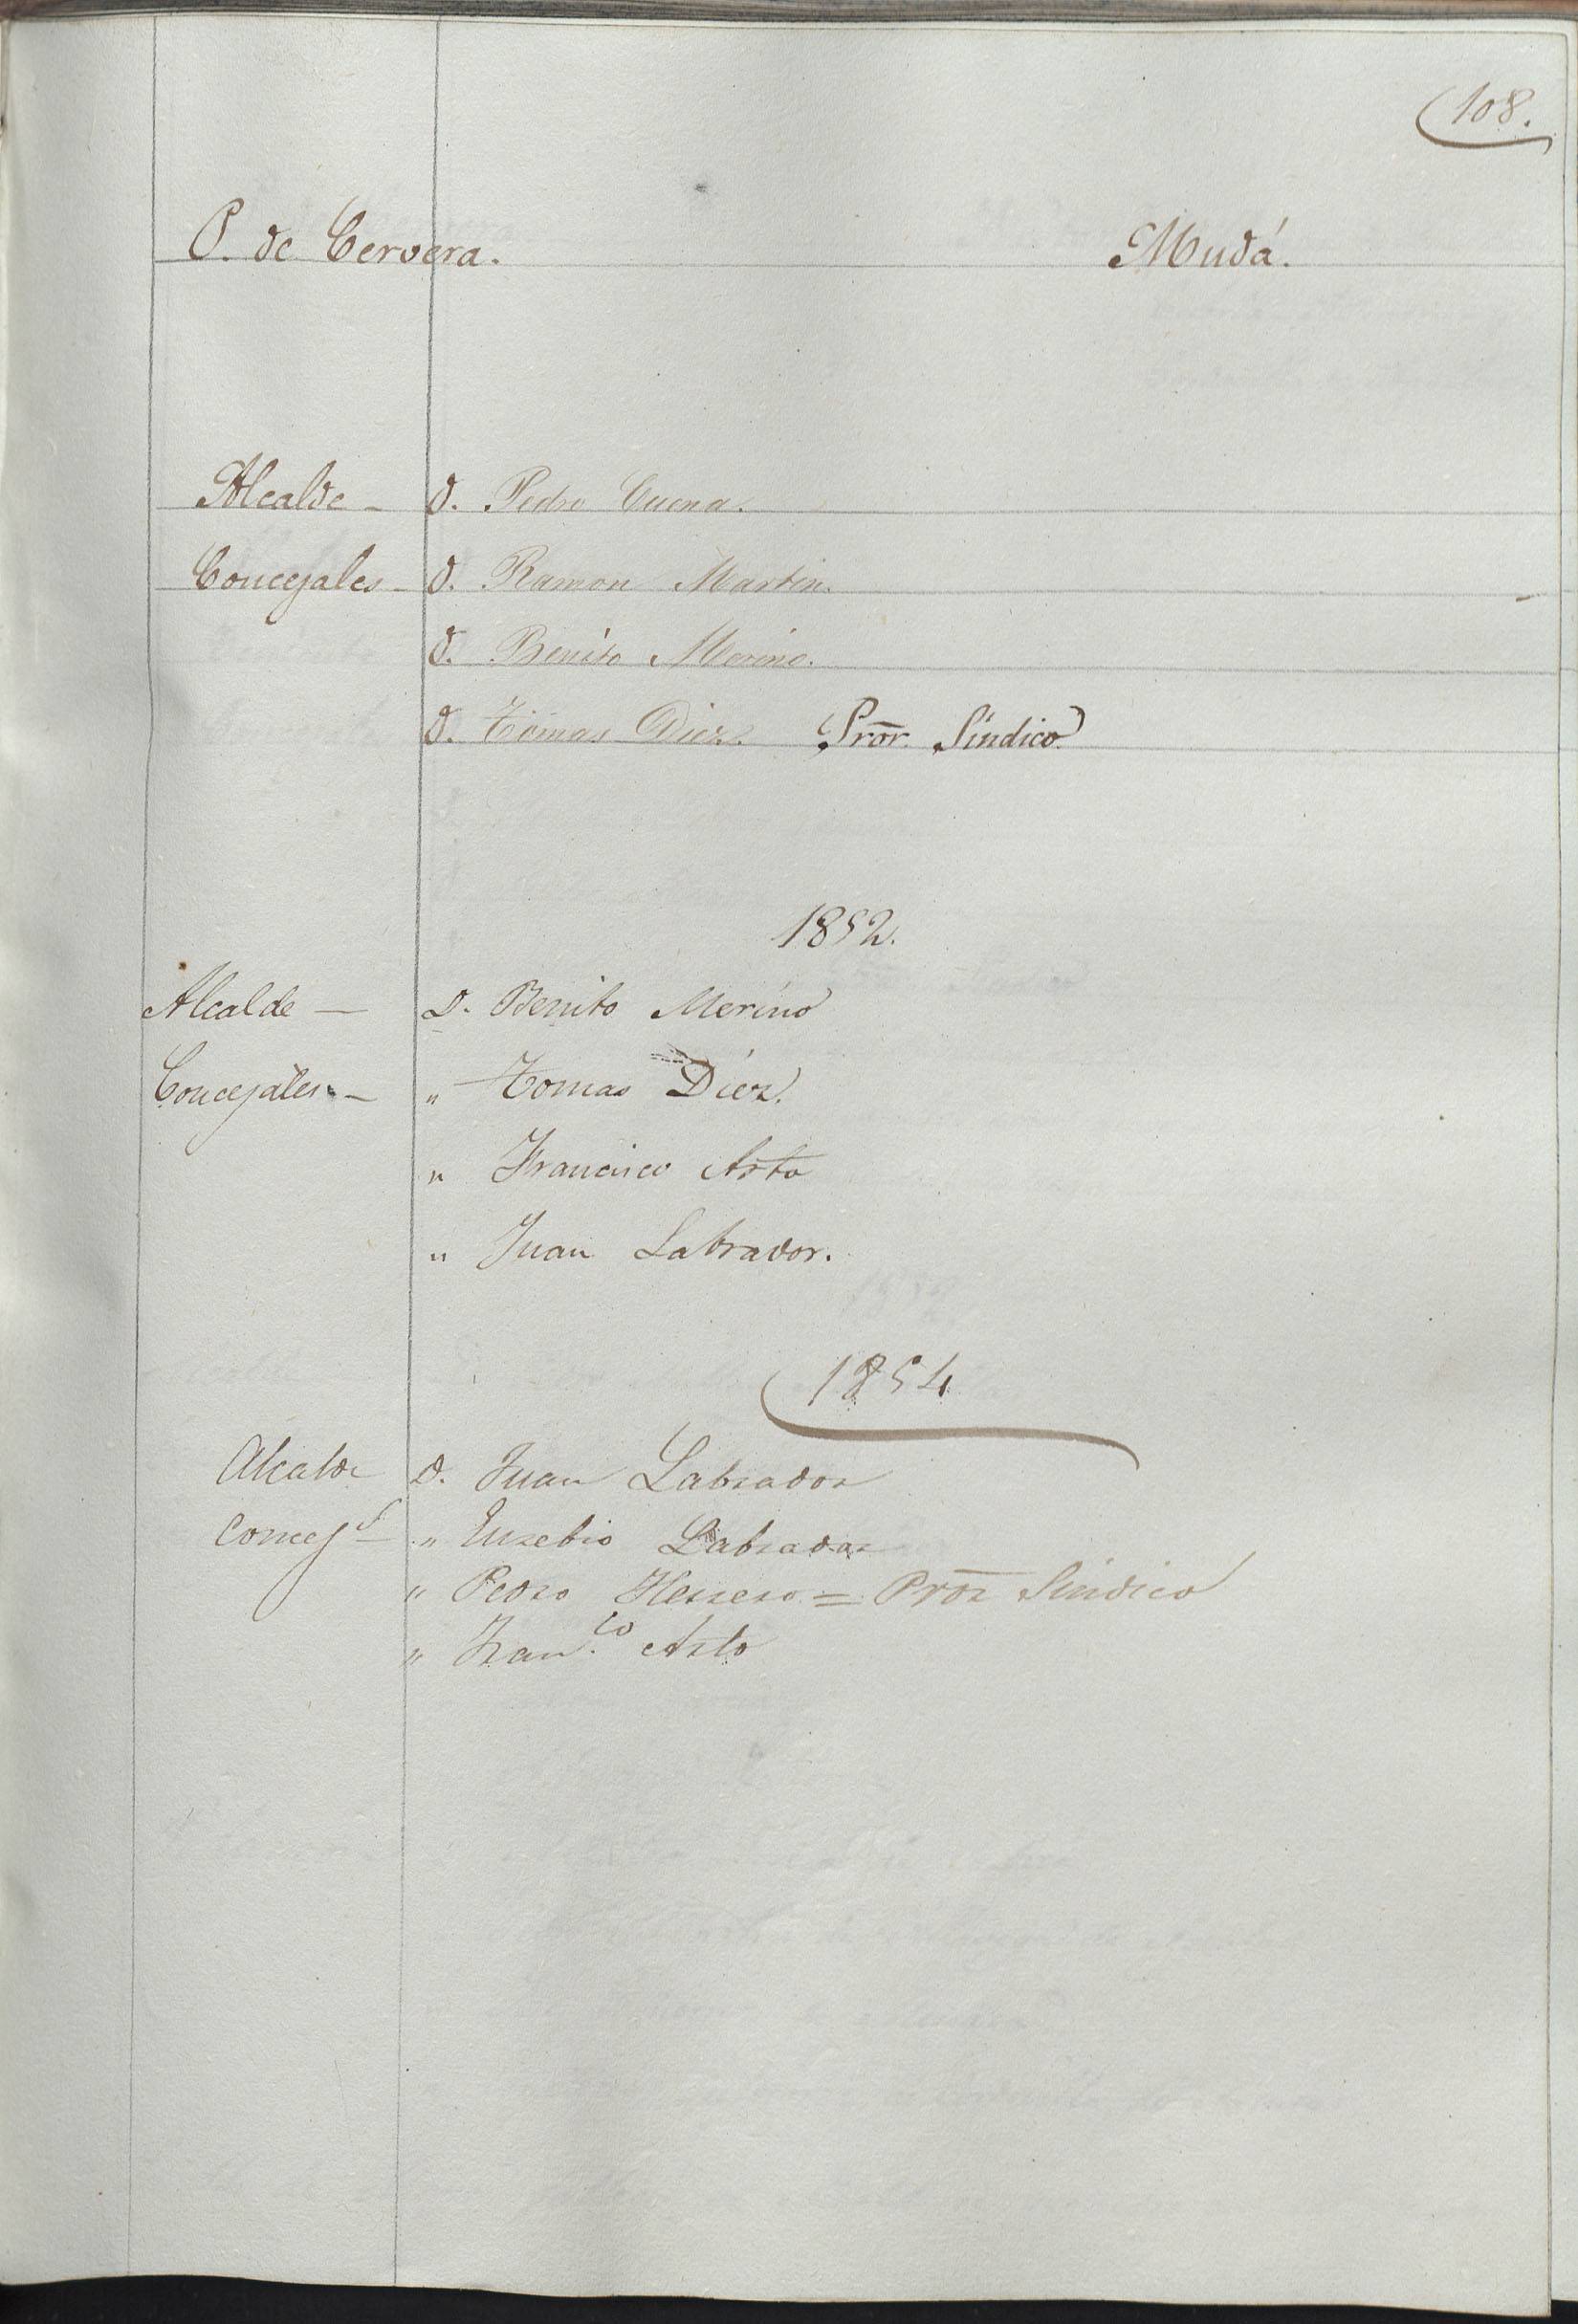 108.
P. de Cervera. Mudá.
Alcalde - D. Pedro Cuena.
Concejales - D. Ramon Martin.
D. Benito Merino.
D. Tomas Diez. Pror. Síndico
1852.
Alcalde — D. Benito Merino
Concejales. — " Tomas Diez.
" Francisco Asto
" Juan Labrador.
1854
Alcalde D. Juan Labrador
Concejs — " Eusebio Labrador
" Pedro Herrero = Pror Síndico
" Fran.co Asto